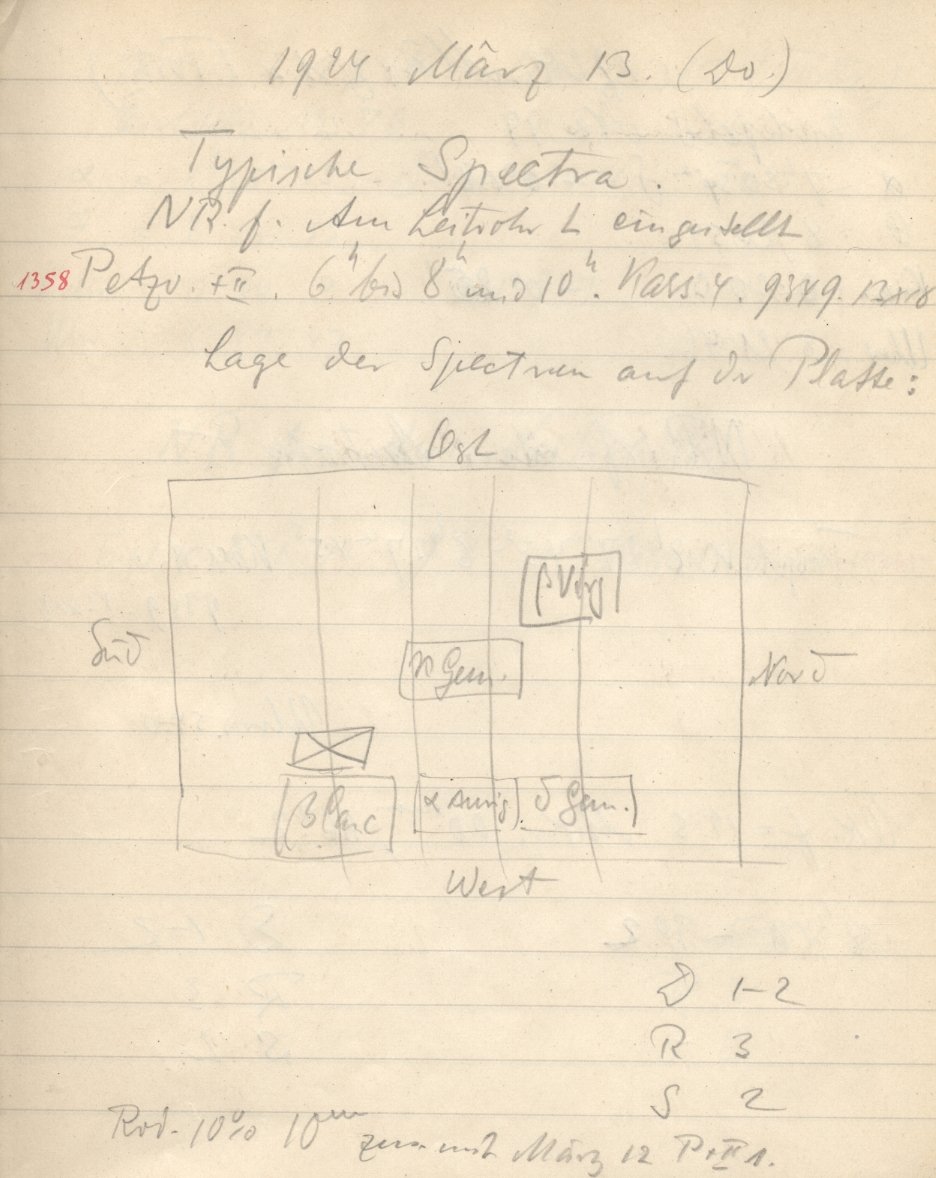 1924 März 13. (Do.)
Typische Spectra.
NR. f. Am Leitrohr L eingestellt
1358 Petzv. +II. 6ʰ bis 8ʰ und 10ʰ. Kass 4. 9349. 13x18
Lage der Spectren auf der Platte:
Ost
β Virg
Süd
κ Gem.
Nord
β Canc
α Aurig
δ Gem.
West
D 1-2
R 3
S 2
Rod. 10% 10ᵐ
zus. mit März 12 P+II 1.